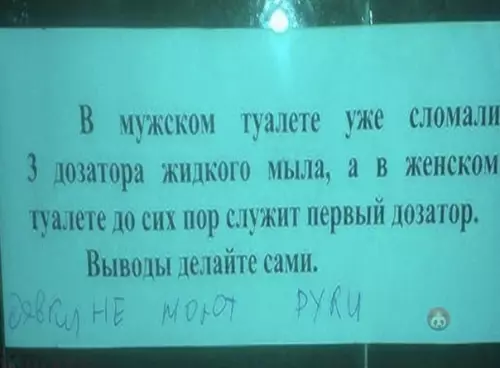 В мужском туалете уже сломали
3 дозатора жидкого мыла, а в женском
туалете до сих пор служит первый дозатор.
Выводы делайте сами.
НЕ моют РУКИ